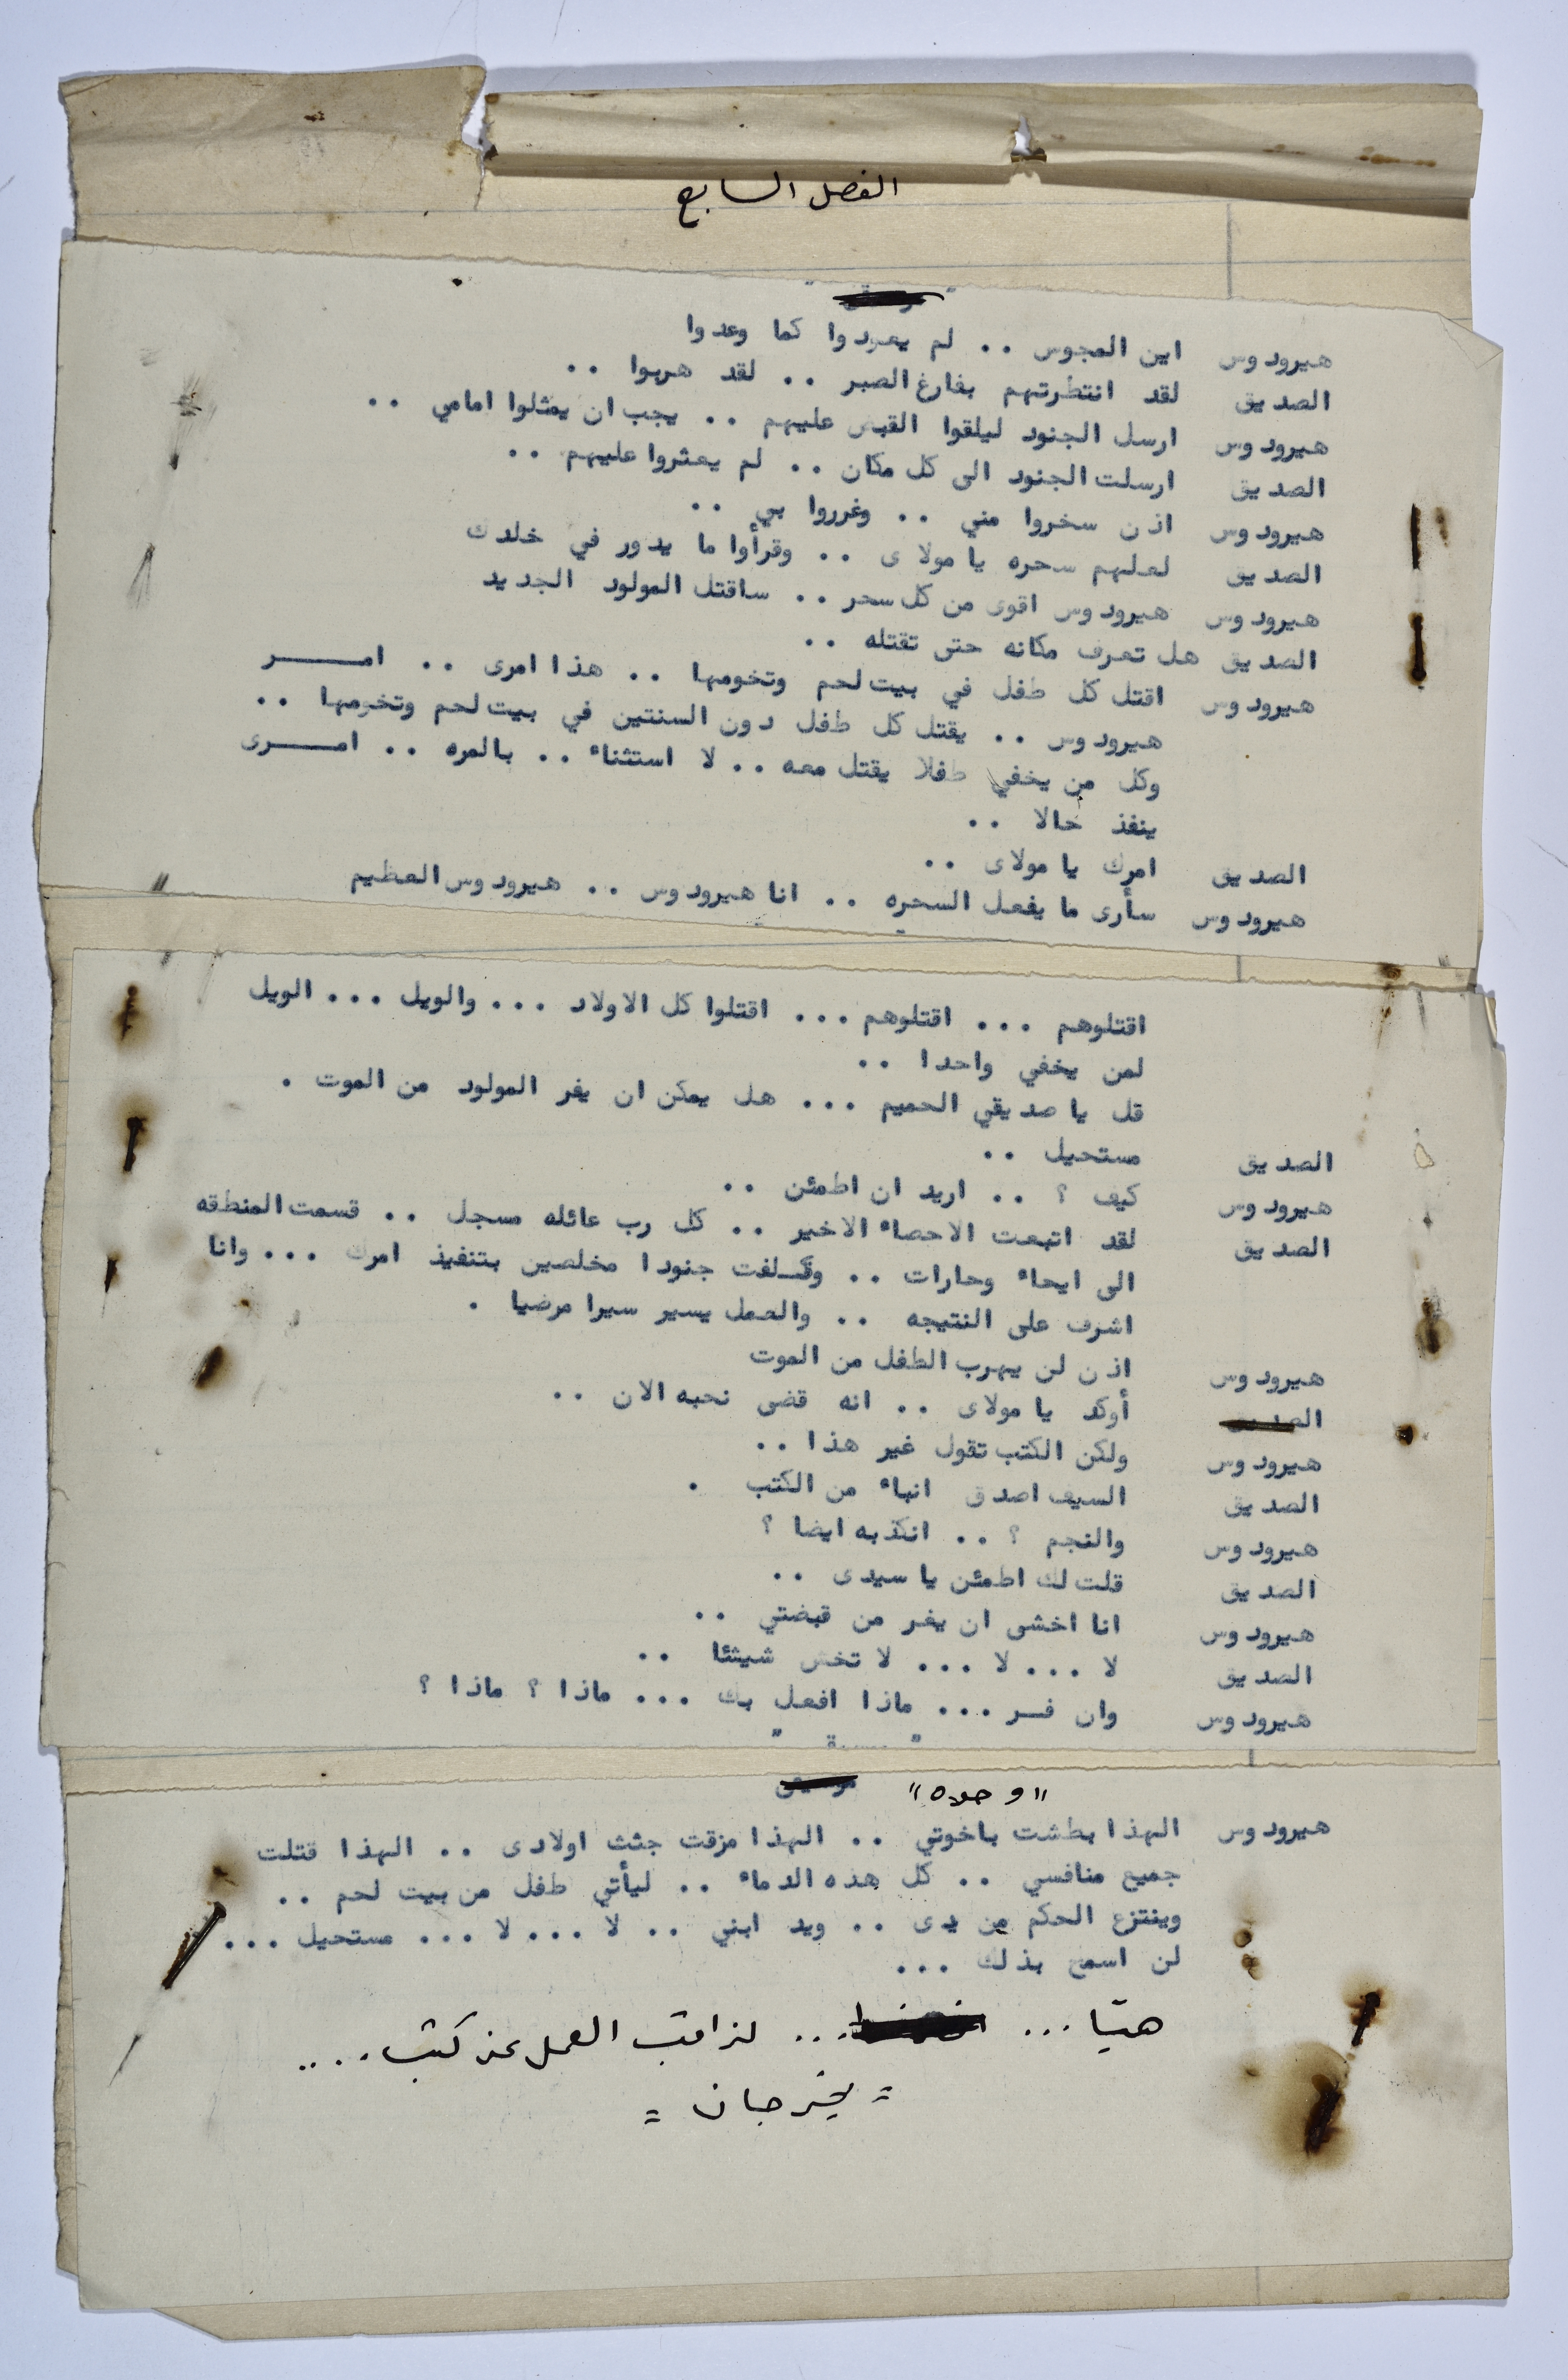 الفصل السابع
هيرودوس اين المجوس .. لم يعودوا كما وعدوا
الصديق لقد انتظرتهم بفارغ الصبر .. لقد هربوا ..
هيرودوس ارسل الجنود ليلقوا القبض عليهم .. يجب ان يمثلوا امامي ..
الصديق ارسلت الجنود الى كل مكان .. لم يعثروا عليهم ..
هيرودوس اذن سخروا مني .. وغرروا بي ..
الصديق لعلهم سحره يا مولاى .. وقرأوا ما يدور في خلدك
هيرودوس هيرودوس اقوى من كل سحر .. ساقتل المولود الجديد
الصديق هل تعرف مكانه حتى تقتله ..
هيرودوس اقتل كل طفل في بيت لحم وتخومها .. هذا امرى .. امـــــر
هيرودوس .. يقتل كل طفل دون السنتين في بيت لحم وتخومها ..
وكل من يخفي طفلا يقتل معه .. لا استثناء .. بالمره .. امـــــرى
ينفذ حالا ..
الصديق امرك يا مولاى ..
هيرودوس سأرى ما يفعل السحره .. انا هيرودوس .. هيرودوس العظيم
اقتلوهم ... اقتلوهم ... اقتلوا كل الاولاد ... والويل ... الويل
لمن يخفي واحدا ..
قل يا صديقي الحميم ... هل يمكن ان يفر المولود من الموت .
الصديق مستحيل ..
هيرودوس كيف ؟ .. اريد ان اطمئن ..
الصديق لقد اتبعت الاحصاء الاخير .. كل رب عائله مسجل .. قسمت المنطقه
الى ايحاء وحارات .. وكـلفت جنودا مخلصين بتنفيذ امرك ... وانا
اشرف على النتيجه .. والعمل يسير سيرا مرضيا .
هيرودوس اذن لن يهرب الطفل من الموت
الصديق أوكد يا مولاى .. انه قضى نحبه الان ..
هيرودوس ولكن الكتب تقول غير هذا ..
الصديق السيف اصدق انباء من الكتب .
هيرودوس والنجم ؟ .. انكذبه ايضا ؟
الصديق قلت لك اطمئن يا سيدى ..
هيرودوس انا اخشى ان يفر من قبضتي ..
الصديق لا ... لا ... لا تخش شيئا ..
هيرودوس وان فـر ... ماذا افعل بك ... ماذا ؟ ماذا ؟
"وحده" موسيقى
هيرودوس الهذا بطشت باخوتي .. الهذا مزقت جثث اولادى .. الهذا قتلت
جميع منافسي .. كل هذه الدماء .. ليأتي طفل من بيت لحم ..
وينتزع الحكم من يدى .. ويد ابني .. لا ... لا ... مستحيل ...
لن اسمح بذلك ...
هيّا ... ... لنراقب العمل عن كثب ....
= يخرجان =